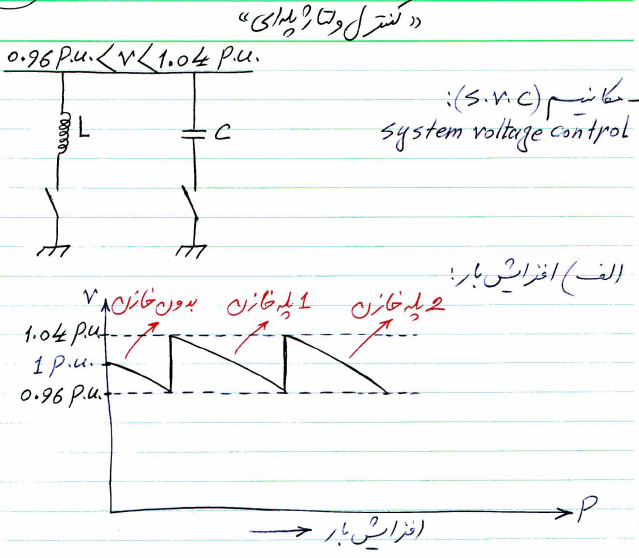 «کنترل ولتاژ پله‌ای»
0.96 P.u. < V < 1.04 P.u.
L
C
- مکانیسم (S.V.C):
system voltage control
الف) افزایش بار:
V
بدون خازن
1 پله خازن
2 پله خازن
1.04 P.u.
1 P.u.
0.96 P.u.
P
افزایش بار